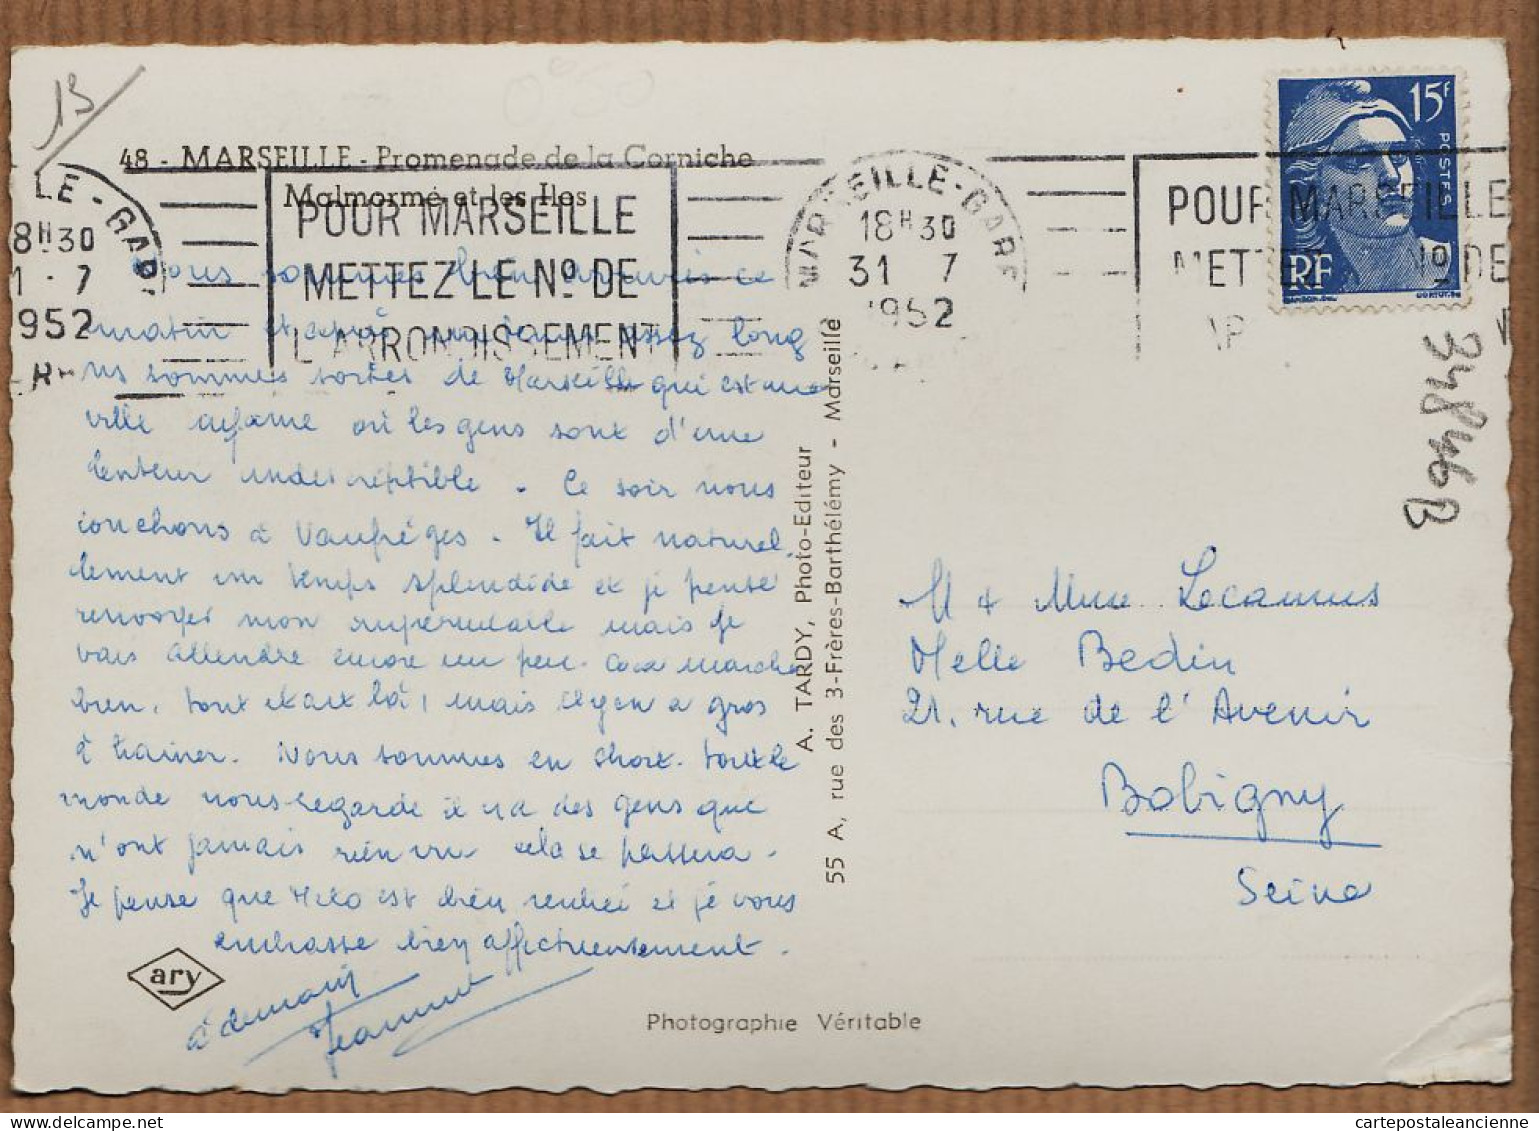 13
0°50
48 - MARSEILLE - Promenade de la Corniche
Malmormé et les Iles
MARSEILLE-GARE
18H30
31 - 7
1952
POUR MARSEILLE
METTEZ LE No DE
L'ARRONDISSEMENT
MARSEILLE-GARE
18H30
31 7
1952
POUR MARSEILLE
METTEZ LE No DE
15F
POSTES
RF
34846B
Nous sommes bien arrivés ce
matin et après un temps assez long
ns sommes sortis de Marseille qui est une
ville infame où les gens sont d'une
lenteur indescriptible. Ce soir nous
couchons à Vaufrèges. Il fait naturel-
lement un temps splendide et je pense
renvoyer mon imperméable mais je
vais attendre encore un peu. Coco marche
bien, tout est au là, mais il y en a gros
à trainer. Nous sommes en short. tout le
monde nous regarde il y a des gens que
n'ont jamais rien vu cela se passera.
Je pense que Melo est bien rentré et je vous
embrasse bien affectueusement.
à demain
Jeannine
ary
A. TARDY, Photo-Editeur
55 A, rue des 3-Frères-Barthélémy - Marseille
Photographie Véritable
M + Mme Lecamus
Melle Bedin
21. rue de l'Avenir
Bobigny
Seine
cartepostaleancienne.com